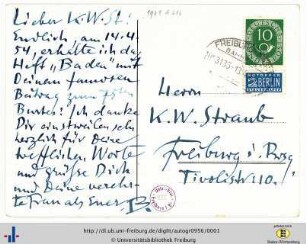 Lieber K.W. St!
Endlich, am 14.4.
54, erhielt ich das
Heft "Baden" mit
Deinem famosen
Beitrag zum
Ich danke
Dir einstweilen sehr
herzlich für Deine
trefflichen Worte
und grüße Dich
und Deine verehr-
te Frau als Euer
FREIBURG
10
NOTOPFER
2 BERLIN
STEUERMARKE
Herrn
K. W. Straub
Freiburg i. Brsg
Tivolistr. 10.
http://dl.ub.uni-freiburg.de/diglit/autogr0956/0003
© Universitätsbibliothek Freiburg